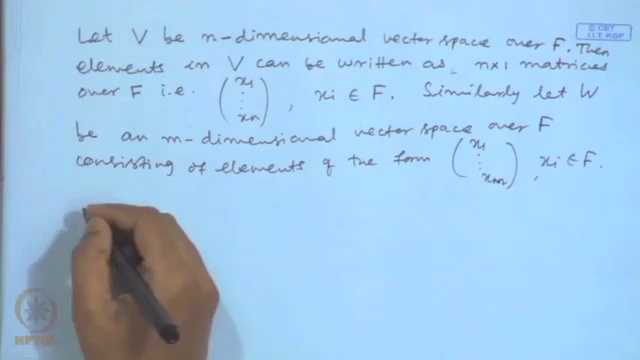 © CET
I.I.T. KGP
Let V be n-dimensional vector space over F. Then
elements in V can be written as, n×1 matrices
over F i.e. (x1 ⋮ xn), xi ∈ F. Similarly let W
be an m-dimensional vector space over F
consisting of elements of the form (x1 ⋮ xm), xi ∈ F.
NPTEL